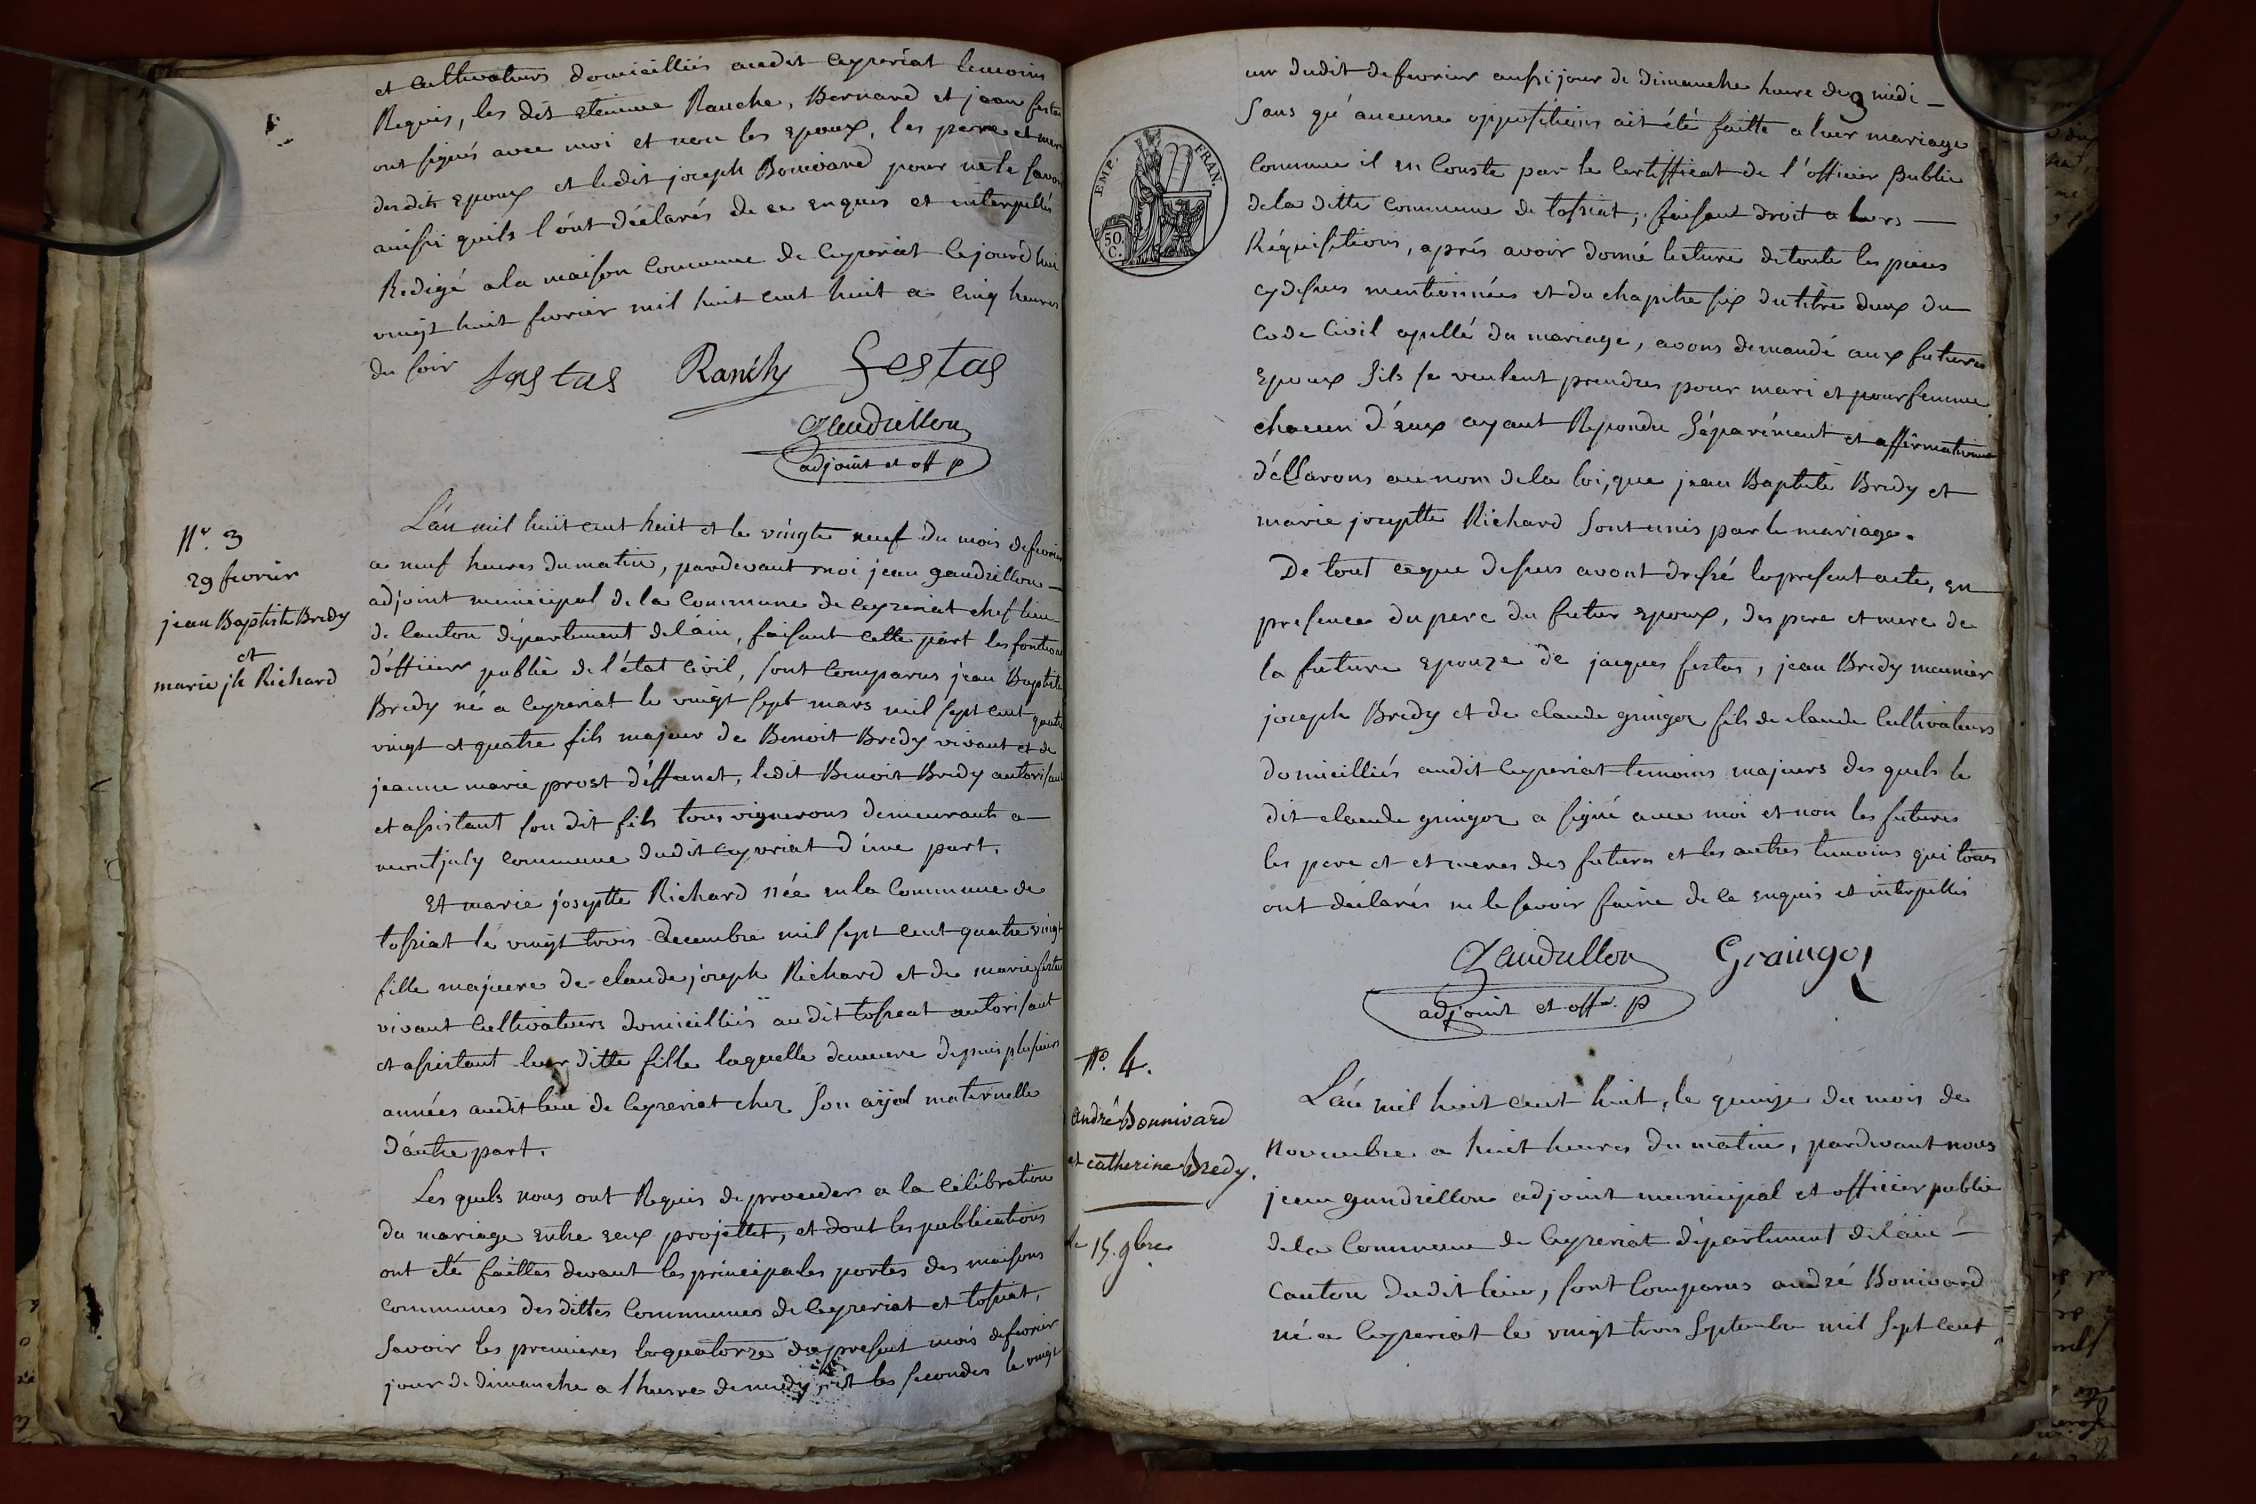 et Cultivateurs domicilliés audit Ceyzeriat temoins
Requis, les dits etienne Ranche, Bernard et jean festas
ont signés avec moi et non les epoux, les peres et mere
desdits epoux et ledit joseph Bonivard pour ne le savoir
ainssi quils l'ont déclarés de ce enquis et interpellés
Redigé a la maison Commune de Ceyzeriat cejourd'hui
vingt huit fevrier mil huit cent huit a cinq heures
du soir festas Ranchy festas
Gaudrillon
adjoint et off p
Nr. 3
29 fevrier
jean Baptiste Bredy
et
marie jh Richard
L'an mil huit cent huit et le vingte neuf du mois de fevrier
a neuf heures du matin, pardevant moi jean gaudrillon
adjoint municipal de la Commune de Ceyzeriat chef lieu
de Canton département de l'ain, faisant cette part les fontions
d'offiier public de l'état Civil, sont Comparus jean Baptiste
Bredy né a Ceyzeriat le vingt sept mars mil sept cent quatre
vingt et quatre fils majeur de Benoit Bredy vivant et de
jeanne marie prost déffunct, ledit Benoit Bredy autorisant
et assistant son dit fils tous vignerons demeurants a
montjuly Commune dudit Ceyzeriat d'une part.
Et marie joseptte Richard née en la Commune de
tossiat le vingt trois decembre mil sept cent quatre vingt
fille majeure de claude joseph Richard et de marie festas
vivant Cultivateurs domicilliés audit tossiat autorisant
et assistant leur ditte fille laquelle demeure depuis plusieurs
années audit lieu de Ceyzeriat chez son aÿeol maternelle
d'autre part.
Les quels nous ont Requis de proceder a la Célébration
du mariage entre eux projettet, et dont les publications
ont été faittes devant les principales portes des maisons
communes des dittes Communes de Ceyzeriat et tossiat,
Savoir les premieres le quatorze du present mois de fevrier
jour de dimanche a l'heure de midy, et les secondes le vingt
EMP. FRAN.
50.
C.
un dudit de fevrier aussi jour de Dimanche heure de midi
Sans qu'aucune oppositions ait été faitte a leur mariage
Comme il en Conste par le Certifficat de l'officier public
de la ditte Commune de tossiat; faisant droit a leurs
Réquisitions, aprés avoir donné lecture de toute les pieces
cydessus mentionnées et du chapitre six du titre deux du
Code Civil apellé du mariage, avons demandé aux futures
Epoux sils se veulent prendres pour mari et pour femme
chacun d'eux ayant Repondu Séparément et affirmativement
déCLarons au nom de la loi, que jean Baptiste Bredy et
marie joseptte Richard sont unis par le mariage.
De tout ce que dessus avont dressé le present acte, en
presence du pere du futur epoux, des pere et mere de
la future epouze de jacques festas, jean Bredy meunier
joseph Bredy et de claude gringoz fils de claude Cultivateurs
domicilliés audit Ceyzeriat temoins majeurs des quels le
dit claude gringoz a signé avec moi et non les futures
les pere et et meres des futures et les autres temoins qui tous
ont déclarés ne le savoir faire de ce enquis et interpellés
Gaudrillon Graingoz
adjoint et offer. p
No. 4.
André Bonnivard
et catherine Bredy.
le 15. 9bre
L'an mil huit cent huit, le quinze du mois de
Novembre a huit heures du matin, pardevant nous
jean gandrillon adjoint municipal et officier public
de la Commune de Ceyzeriat département de l'ain
Canton dudit lieu, sont Comparus andré Bonivard
né a Ceyzeriat le vingt trois Septembre mil Sept cent